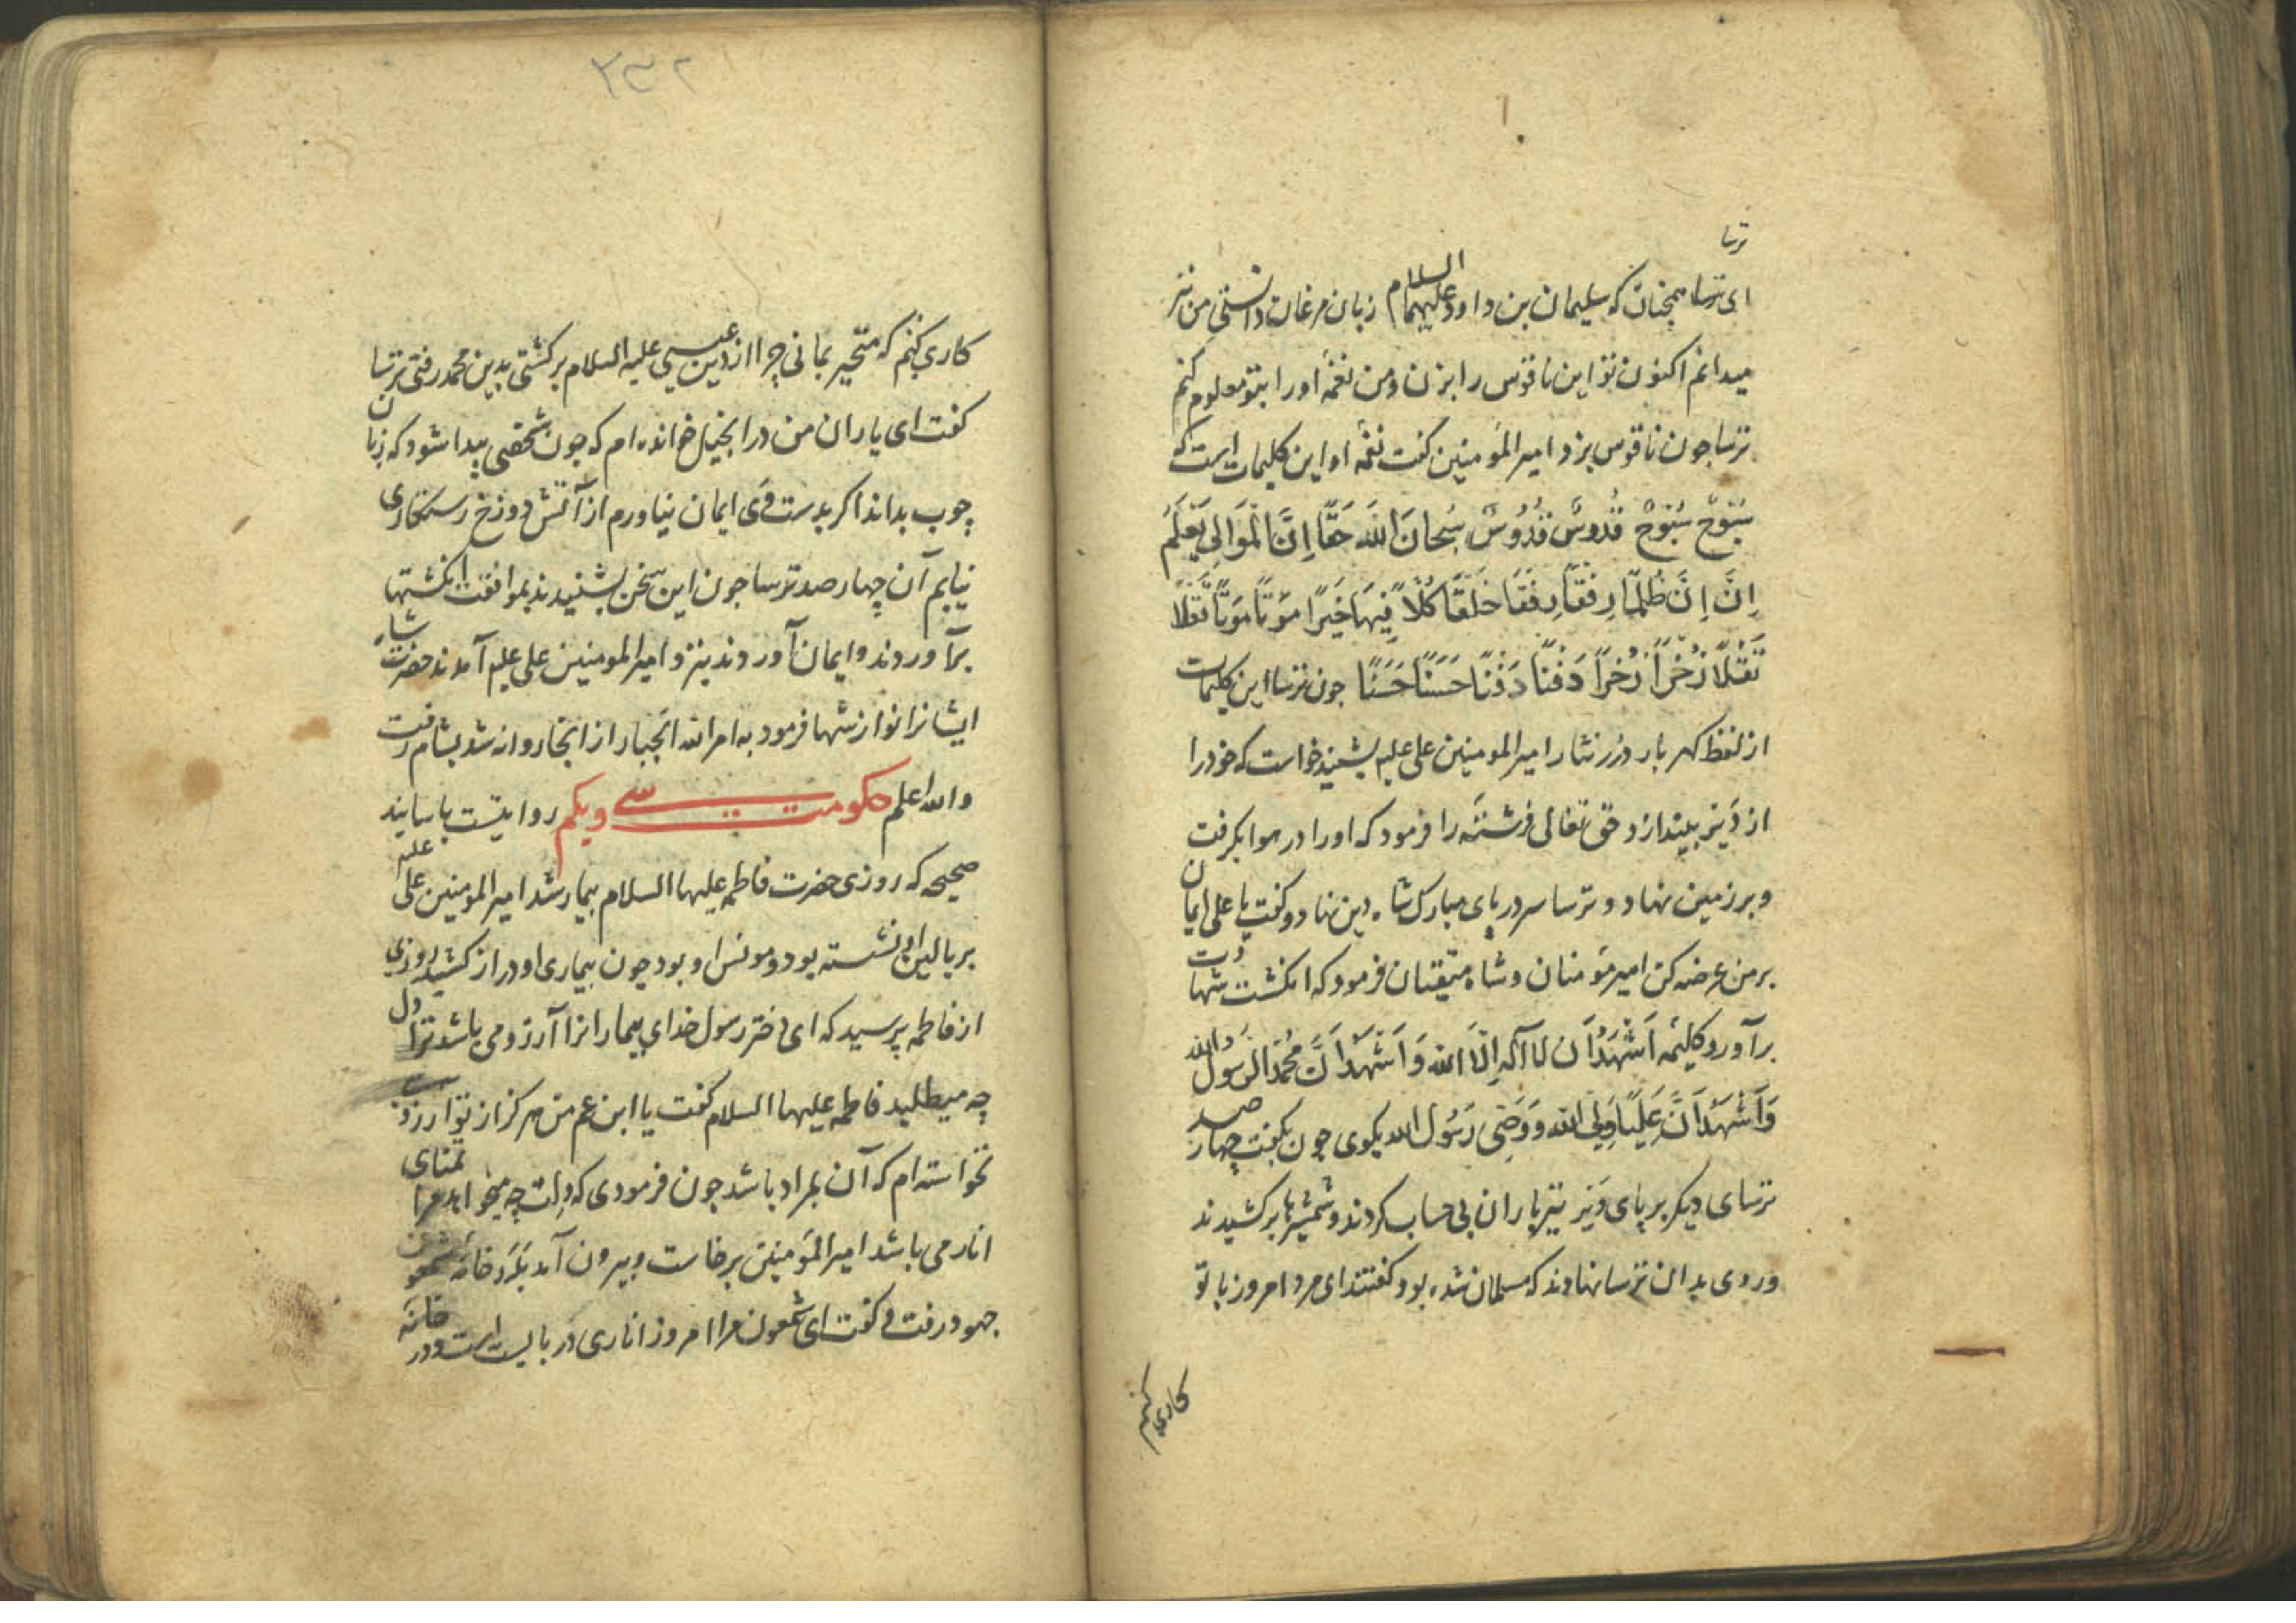 ترسا
ای ترسا همچنان که سلیمان بن داود علیهما السلام زبان مرغان دانستی من نیز
میدانم اکنون تو این ناقوس را بزن و من نغمهٔ او را بتو معلوم کنم
ترسا چون ناقوس بزد امیر المؤمنین کفت نغمه او این کلیمات است که
سُبّوحٌ سُبّوحٌ قُدّوسٌ قُدُّوسٌ سُبحانَ اللهَ حَقًّا اِنَّ الْمَوَالِی یَعْلَمُ
اِنَّ اِنَّ ظُلمًا رِفقًا رِفقًا خَلَقًا كُلّاً فِیهَا خَیرًا مَوتًا مَوتًا نَقلًا
نَقْلًا ذُخْراً ذُخراً دَفنًا دَفنًا حَسَنًا حَسَنًا چون ترسا این کلیمات
از لفظ کهر بار درر نثار امیر المومنین علی علیه بشنید خواست که خود را
از دَیر بیندازد حق تعالی فرشتهٔ را فرمود که او را در هوا بکرفت
و بر زمین نهاد و ترسا سر در پای مبارک شاه دین نهاد و کفت یا علی ایمان
بر من عرضه کن امیر مؤمنان و شاه متیقنان فرمود که انکشت شهادت
برآور و کلیمه اَشْهَدُ اَن لا آله اِلّا الله وَ اَشْهَدُ اَنَّ مُحَمَّدا الرَسول الله
وَ اَشْهَدُ اَنَّ عَلِیًّا وَلِی الله وَ وَصِی رَسُول الله بکوی چون بکفت چهار صد
ترسای دیکر بر پای دَیر تیر باران بی حساب کردند و شمشیرها برکشیدند
و روی بدان ترسا نهادند که مسلمان شده بود کفتند ای مرد امروز با تو
کاری کنم
۲۳۲
کاری کنم که متحیر بمانی چرا از دین عیسی علیه السلام برکشتی بدین محمد رفتی ترسا
کفت ای یاران من در انجیل خوانده ام که چون شخصی پیدا شود که زبان
چوب بداند اکر بدست وی ایمان نیاورم از آتش دوزخ رستکاری
نیابم آن چهار صد ترسا چون این سخن بشنیدند بموافقت انکشتها
برآوردند و ایمان آوردند بنزد امیر المومنین علی علیه آمدند حضرت شاه
ایشانرا نوازشها فرمود به امر الله الجبار از انجا روانه شد بشام رفت
والله اعلم حکومت سی و یکم روایتست باسانید
صحیحه که روزی حضرت فاطمه علیها السلام بیمار شد امیر المومنین علی علیه
بر بالین او نشسته بود و مونس او بود چون بیماری او دراز کشید روزی
از فاطمه پرسید که ای دختر رسول خدای بیمارانرا آرزو می باشد ترا دل
چه میطلبد فاطمه علیها السلام کفت یا ابن عم من هرکز از تو آرزوی
نخواسته ام که آن بمراد باشد چون فرمودی که دلت چه میخواهد مرا تمنای
انار می باشد امیر المَومنین برخاست و بیرون آمد بَدَر خانه شمعون
جهود رفت و کفت ای شمعون مرا امروز اناری در بایست است و در خانه